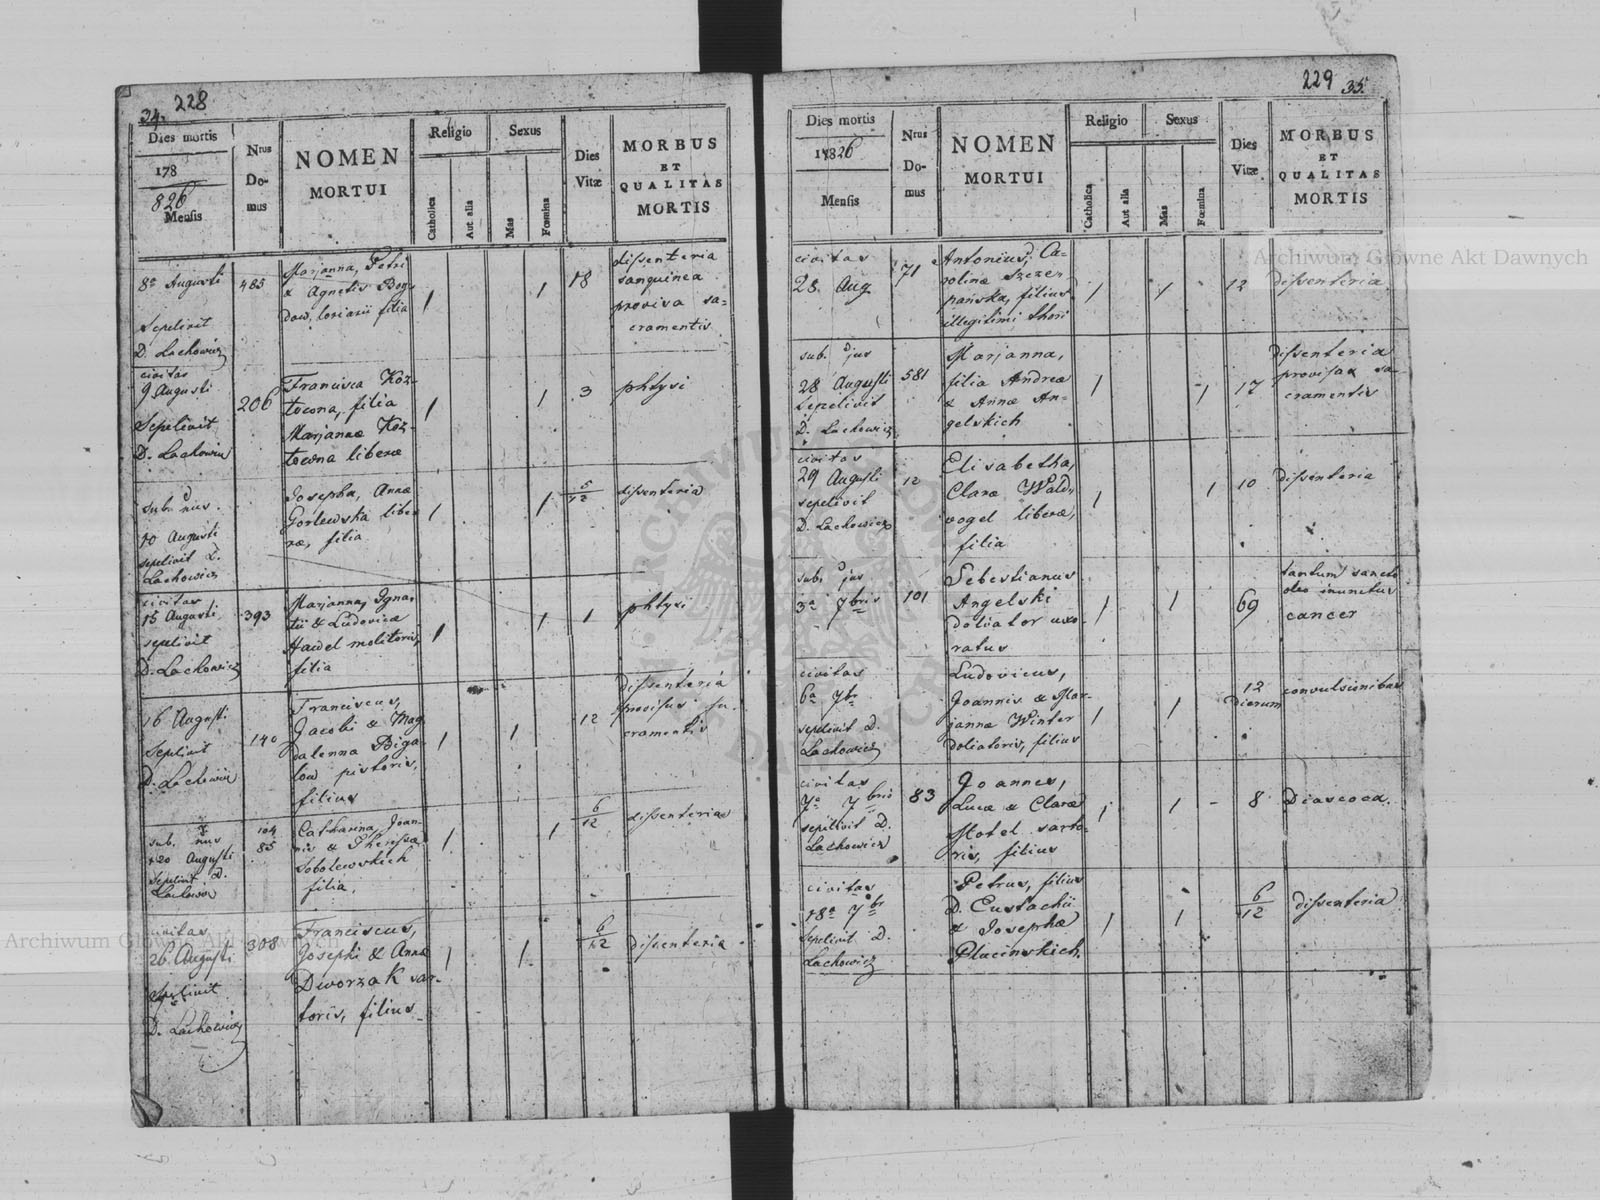 34. 228
Dies mortis
178
826
Mensis
Nrus
Do-
mus
NOMEN
MORTUI
Religio
Catholica
Aut alia
Sexus
Mas
Fœmina
Dies
Vitæ
MORBUS
ET
QUALITAS
MORTIS
8a Augusti
Sepelivit
D. Lachowicz
485
Marjanna, Petri
& Agnetis Bog-
dow, loriarii filia
1
1
18
dissenteria
sanguinea
provisa sa-
cramentis
civitas
9 Augusti
Sepelivit
D. Lachowicz
206
Francisca Koz-
towna, filia
Marjannæ Koz-
towna liberæ
1
1
3
phtysi
sub. nus.
10 Augusti
sepelivit D.
Lachowicz
Josepha, Annæ
Gorlewska libe-
ræ, filia
1
1
5/12
dissenteria
civitas
15 Augusti
sepelivit
D. Lachowicz
393
Marjanna, Igna-
tii & Ludovicæ
Hawel molitoris,
filia
1
1
1
phtysi
16 Augusti
Sepelivit
D. Lachowicz
140
Franciscus,
Jacobi & Mag-
dalenna Biga-
low pistoris,
filius
1
1
12
dissenteria
provisus sa-
cramentis
sub. nus
20 Augusti
Sepelivit D.
Lachowicz
104
85
Catharina, Joan-
nis & Theressæ
Sobolewskich
filia,
1
1
6/12
dissenteria
civitas
26 Augusti
Sepelivit
D. Lachowicz
308
Franciscus,
Josephi & Annæ
Dworzak sar-
toris, filius
1
1
6/12
dissenteria
229 35.
Dies mortis
17826
Mensis
Nrus
Do-
mus
NOMEN
MORTUI
Religio
Catholica
Aut alia
Sexus
Mas
Fœmina
Dies
Vitæ
MORBUS
ET
QUALITAS
MORTIS
civitas
28. Aug
71
Antonius, Ca-
rolinæ Szcze-
pańska, filius
illegitimi thori
1
1
12
dissenteria
sub. jus
28 Augusti
Sepelivit
D. Lachowicz
581
Marjanna,
filia Andreæ
& Annæ An-
gelskich
1
1
17
dissenteria
provisa sa-
cramentis
civitas
29 Augusti
sepelivit
D. Lachowicz
12
Elisabetha,
Claræ Wald-
vogel liberæ,
filia
1
1
10
dissenteria
sub. jus
3a 7bris
101
Sebestianus
Angelski
doliator uxo-
ratus
1
1
69
tantum sancto
oleo inunctus
cancer
civitas
6a 7br
sepelivit D.
Lachowicz
Ludovicus,
Joannis & Mar-
jannæ Winter
doliatoris, filius
1
1
12
dierum
convulsionibus
civitas
7a 7bris
sepelivit D.
Lachowicz
83
Joannes,
Lucæ & Claræ
Motel sarto-
ris, filius
1
1
8
Diascoea.
civitas
18a 7br
Sepelivit D.
Lachowicz
Petrus, filius
D. Eustachii
& Josephæ
Plucinskich.
1
1
6/12
dissenteria
Archiwum Główne Akt Dawnych
Archiwum Główne Akt Dawnych